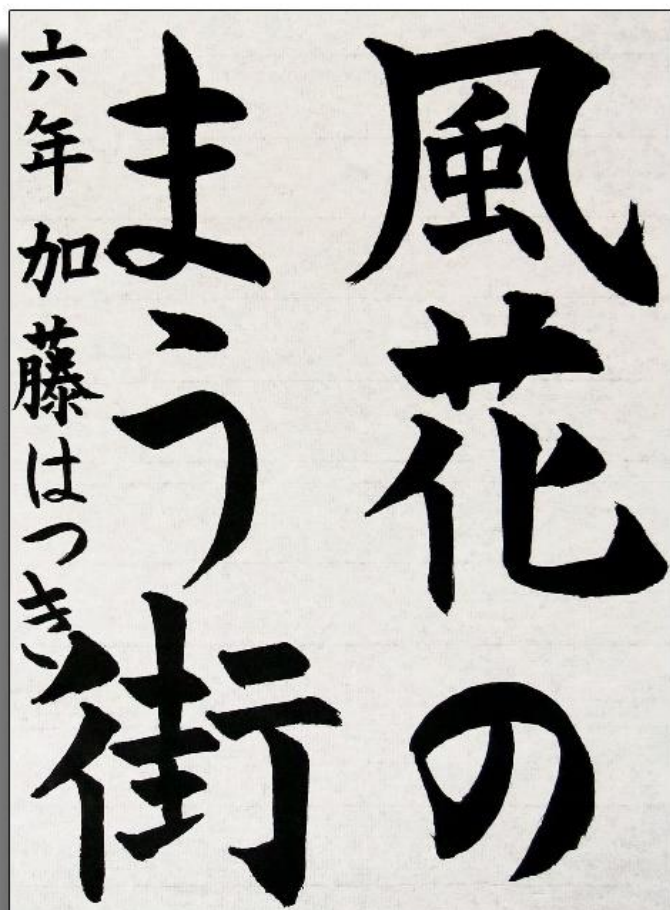 風花の
まう街
六年 加藤はつき